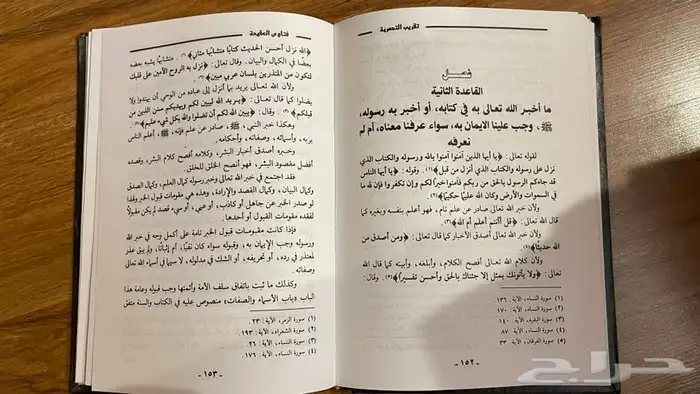 تقريب التدمرية
فصل
القاعدة الثانية
ما أخبر الله تعالى به في كتابه، أو أخبر به رسوله،
ﷺ، وجب علينا الايمان به، سواء عرفنا معناه، أم لم
نعرفه
لقوله تعالى: ﴿يا أيها الذين آمنوا آمنوا بالله ورسوله والكتاب الذي
نزل على رسوله والكتاب الذي أنزل من قبل﴾(١). وقوله: ﴿يا أيها الناس
قد جاءكم الرسول بالحق من ربكم فآمنوا خيراً لكم وإن تكفروا فإن لله ما
في السموات والأرض وكان الله عليماً حكيماً﴾(٢).
ولأن خبر الله تعالى صادر عن علم تام، فهو أعلم بنفسه وبغيره كما
قال الله تعالى: ﴿قل أأنتم أعلم أم الله﴾(٣).
ولأن خبر الله تعالى أصدق الأخبار كما قال تعالى: ﴿ومن أصدق من
الله حديثاً﴾(٤).
ولأن كلام الله تعالى أفصح الكلام، وأبلغه، وأبينه كما قال الله
تعالى: ﴿ولا يأتونك بمثل إلا جئناك بالحق وأحسن تفسيراً﴾(٥). وقال:
(١) سورة النساء، الآية: ١٣٦
(٢) سورة النساء، الآية: ١٧٠
(٣) سورة البقرة، الآية: ١٤٠
(٤) سورة النساء، الآية: ٨٧
(٥) سورة الفرقان، الآية: ٣٣
- ١٥٢ -
فتاوى العقيدة
﴿الله نزل أحسن الحديث كتاباً متشابهاً مثاني﴾(١). متشابهاً يشبه بعضه
بعضاً في الكمال والبيان. وقال تعالى: ﴿نزل به الروح الأمين على قلبك
لتكون من المنذرين بلسان عربي مبين﴾(٢).
ولأن الله تعالى يريد بما أنزل إلى عباده من الوحي أن يهتدوا ولا
يضلوا كما قال تعالى: ﴿يريد الله ليبين لكم ويهديكم سنن الذين من
قبلكم﴾(٣). وقال: ﴿يبين الله لكم أن تضلوا والله بكل شيء عليم﴾(٤).
وهكذا خبر النبي، ﷺ، صادر عن علم فإنه، ﷺ، أعلم الناس
بربه، وأسمائه، وصفاته، وأحكامه.
وخبره أصدق أخبار البشر، وكلامه أفصح كلام البشر، وقصده
أفضل مقصود البشر، فهو أنصح الخلق للخلق.
فقد اجتمع في خبر الله تعالى وخبر رسوله كمال العلم، وكمال الصدق
وكمال البيان، وكمال القصد والإرادة، وهذه هي مقومات قبول الخبر وفذا
لو صدر الخبر عن جاهل أو كاذب، أو عيي، أو سيء قصد لم يكن مقبولاً
لفقده مقومات القبول أو أحدها.
فإذا كانت مقومات قبول الخبر تامة على أكمل وجه في خبر الله
ورسوله وجب الإيمان به، وقبوله سواء كان نفياً، أم إثباتاً، ولم يبق عذر
لمعتذر في رده، أو تحريفه، أو الشك في مدلوله، لا سيما في أسماء الله تعالى
وصفاته.
وكذلك ما ثبت باتفاق سلف الأمة وأئمتها وجب قبوله وعامة هذا
الباب «باب الأسماء والصفات» منصوص عليه في الكتاب والسنة متفق
(١) سورة الزمر، الآية: ٢٣.
(٢) سورة الشعراء، الآية: ١٩٣.
(٣) سورة النساء، الآية: ٢٦.
(٤) سورة النساء، الآية: ١٧٦.
- ١٥٣ -
حراج